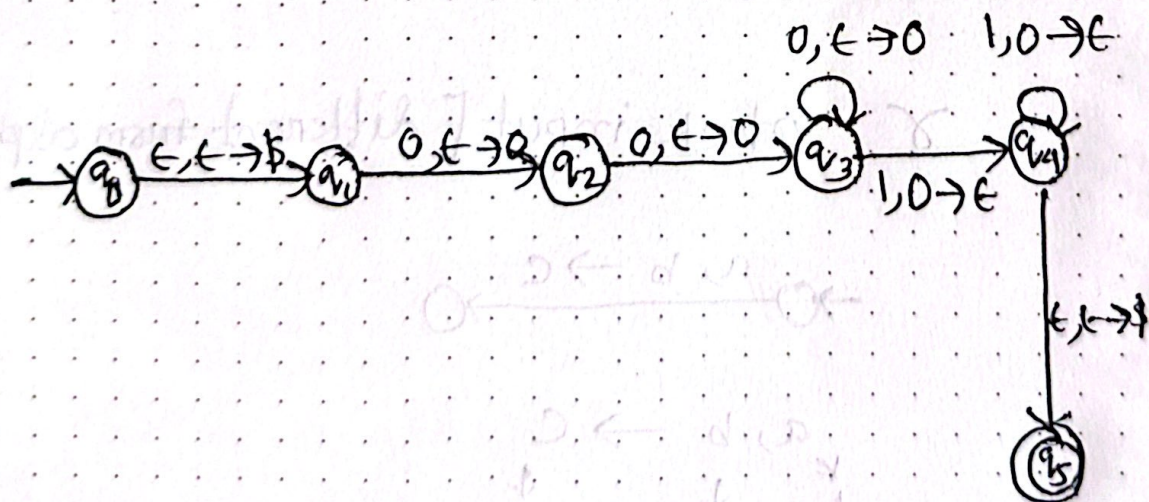 0,ε→0 1,0→ε
q0 ε,ε→$ q1 0,ε→0 q2 0,ε→0 q3 1,0→ε q4
ε,ε→$
q5